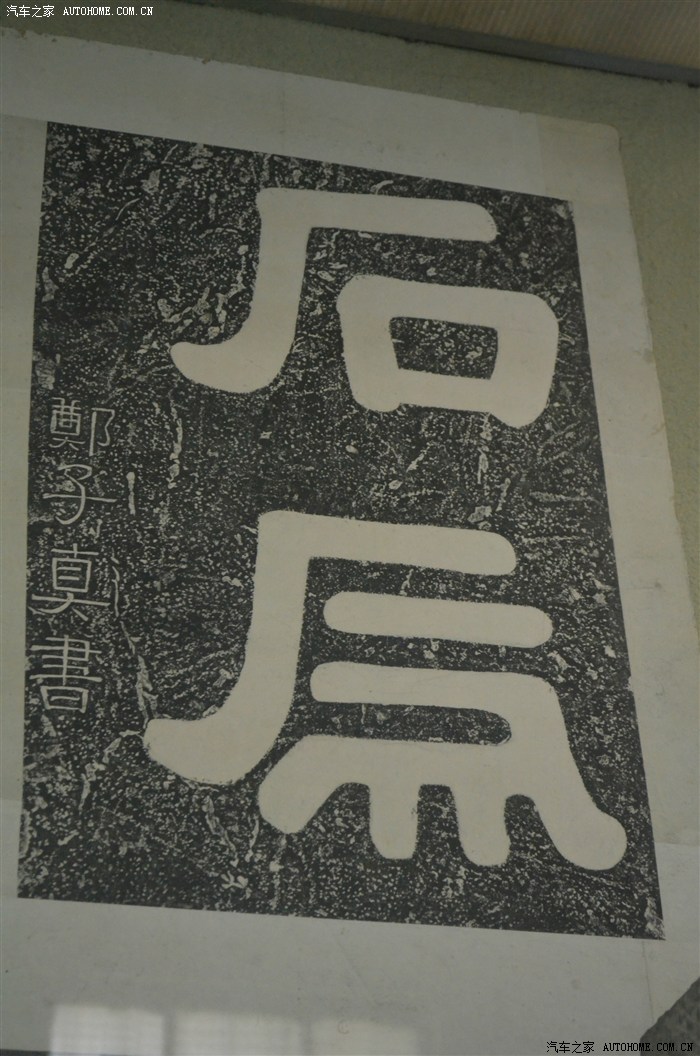 汽车之家 AUTOHOME.COM.CN
石虎
鄭子真書
汽车之家 AUTOHOME.COM.CN